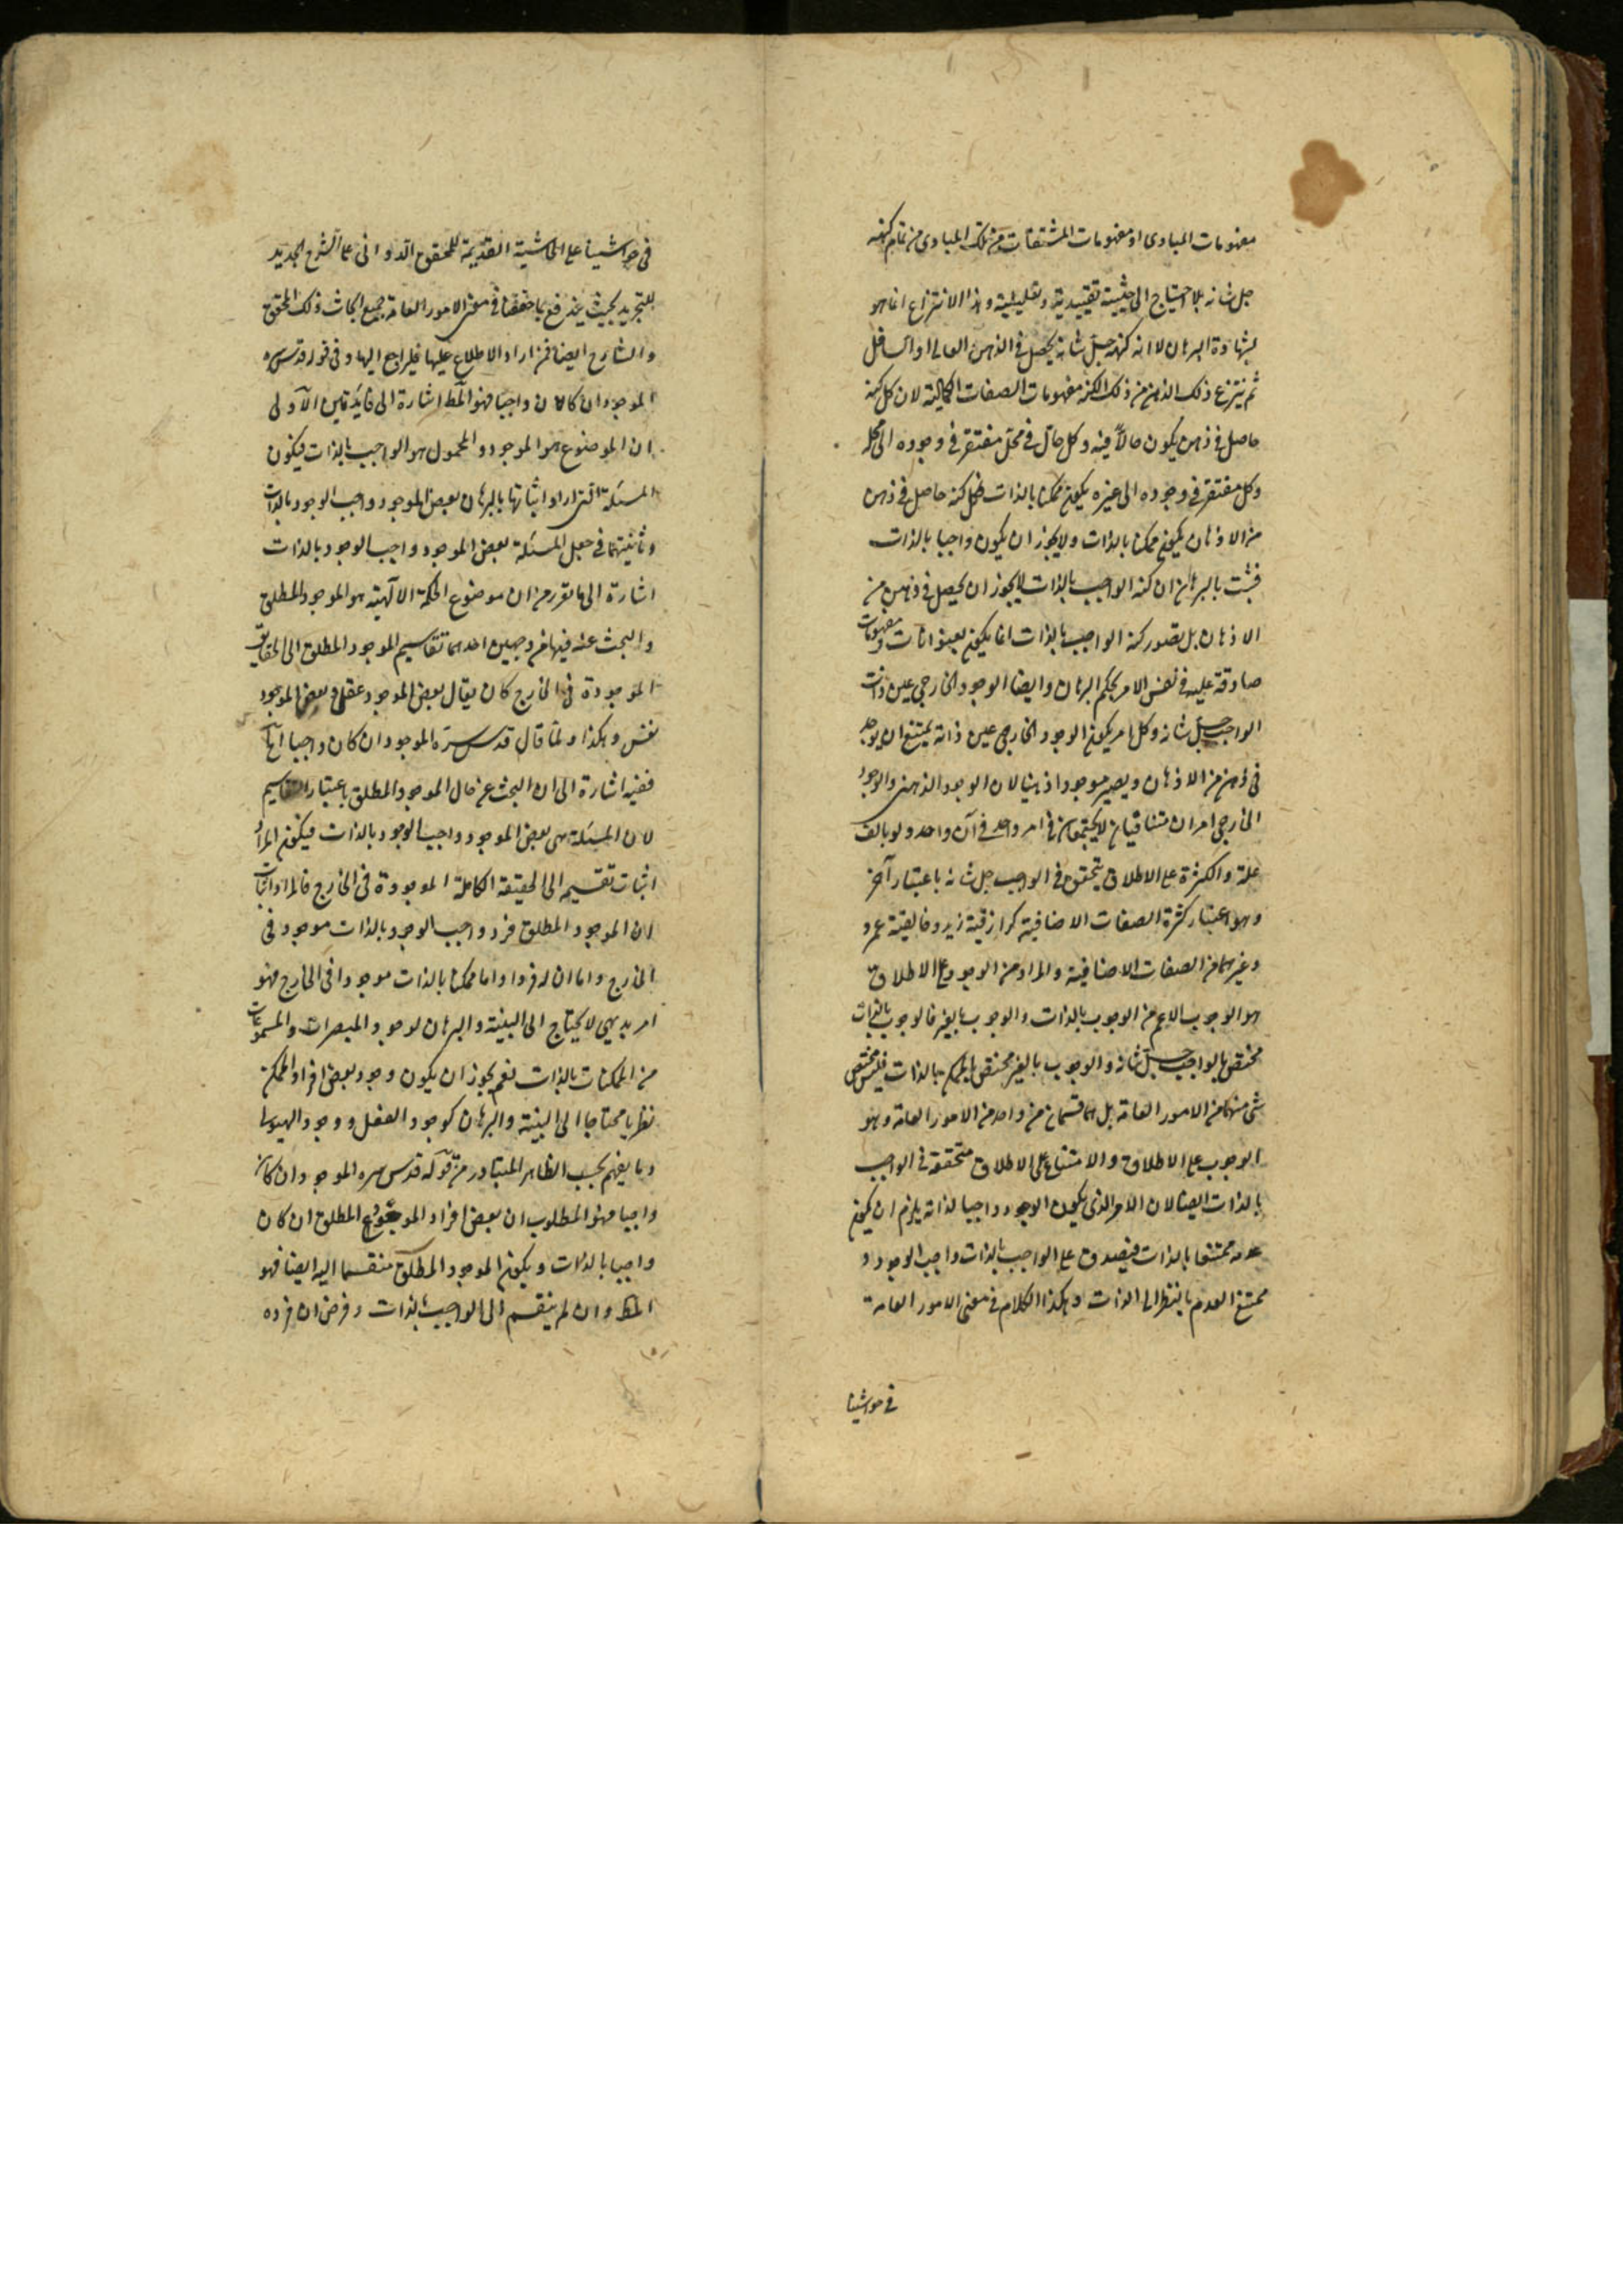 مفهومات المبادى او مفهومات المشتقات من تلك المبادى من تمام كنهه
جل شانه بلا احتياج الى حيثية تقييدية وتعليلية وهذا الانتزاع انما هو
بشهادة البرهان لا انه كنهه جل شانه يحصل فى الذهن العالى او السافل
ثم ينتزع ذلك الذهن من ذلك الكنه مفهومات الصفات الكمالية لان كل كنه
حاصل فى ذهن يكون حالاً فيه وكل حال فى محل مفتقر فى وجوده الى محله
وكل مفتقر فى وجوده الى غيره يكون ممكنا بالذات فكل كنه حاصل فى ذهن
من الاذهان يكون ممكنا بالذات ولا يجوز ان يكون واجبا بالذات
فثبت بالبرهان ان كنه الواجب بالذات لا يجوز ان يحصل فى ذهن من
الاذهان بل تصور كنه الواجب بالذات انما يكون بعنوانات ومفهومات
صادقة عليه فى نفس الامر بحكم البرهان وايضا الوجود الخارجى عين ذات
الواجب جل شانه وكل امر يكون الوجود الخارجى عين ذاته يمتنع ان يوجد
فى ذهن من الاذهان ويصير موجودا ذهنيا لان الوجود الذهنى والوجود
الخارجى امران متنافيان لا يجتمعان فى امر واحد فى آن واحد ولو بالف
علة والكثرة على الاطلاق يتحقق فى الواجب جل شانه باعتبار آخر
وهو اعتبار كثرة الصفات الاضافية كرازقية زيد وخالقية عمرو
وغيرهما من الصفات الاضافية والمراد من الوجوب على الاطلاق
هو الوجوب الاعم من الوجوب بالذات والوجوب بالغير فالوجوب بالذات
مختص بالواجب جل شانه والوجوب بالغير مختص بالممكن بالذات فليس مختص
شى منهما من الامور العامة بل هما قسمان من واحد من الامور العامة وهو
الوجوب على الاطلاق والامتناع على الاطلاق متحققة فى الواجب
بالذات ايضا لان الامر الذى يكون الوجود واجبا لذاته يلزم ان يكون
عدمه ممتنعا بالذات فيصدق على الواجب بالذات واجب الوجود و
ممتنع العدم بالنظر الى الذات وهكذا الكلام فى معنى الامور العامة
فى حواشينا
فى حواشينا على الحاشية القديمة للمحقق الدوانى على الشرح الجديد
للتجريد بحيث يندفع بما حققنا فى معنى الامور العامة جميع ابحاث ذلك المحقق
والشارح ايضا فمن اراد الاطلاع عليها فليراجع اليها وفى قوله قدس سره
الموجود ان كان واجبا فهو المط اشارة الى فايدتين الاولى
ان الموضوع هو الموجود والمحمول هو الواجب بالذات فيكون
المسئلة التى ارادوا اثباتها بالبرهان بعض الموجود واجب الوجود بالذات
وثانيتهما فى جعل المسئلة بعض الموجود واجب الوجود بالذات
اشارة الى ما تقرر من ان موضوع الحكمة الالهية هو الموجود المطلق
والبحث عنه فيها من وجهين احدهما تقاسيم الموجود المطلق الى الحقايق
الموجودة فى الخارج كان يقال بعض الموجود عقل وبعض الموجود
نفس وهكذا ولما قال قدس سره الموجود ان كان واجبا آه
ففيه اشارة الى ان البحث عن حال الموجود المطلق باعتبار التقاسيم
لان المسئلة هى بعض الموجود واجب الوجود بالذات فيكون المراد
اثبات تقسيمه الى الحقيقة الكاملة الموجودة فى الخارج فالمراد اثبات
ان الموجود المطلق فرد واجب الوجود بالذات موجود فى
الخارج واما ان له فردا واما ممكنا بالذات موجودا فى الخارج فهو
امر بديهى لا يحتاج الى البينة والبرهان لوجود المبصرات والمسموعات
من الممكنات بالذات نعم يجوز ان يكون وجود بعض افراد الممكن
نظريا محتاجا الى البينة والبرهان كوجود العقل ووجود الهيولى
وما يفهم بحسب الظاهر المتبادر من قوله قدس سره الموجود ان كان
واجبا فهو المطلوب ان بعض افراد الموجود المطلق ان كان
واجبا بالذات ويكون الموجود المطلق منقسما اليه ايضا فهو
المط وان لم ينقسم الى الواجب بالذات وفرض ان فرده